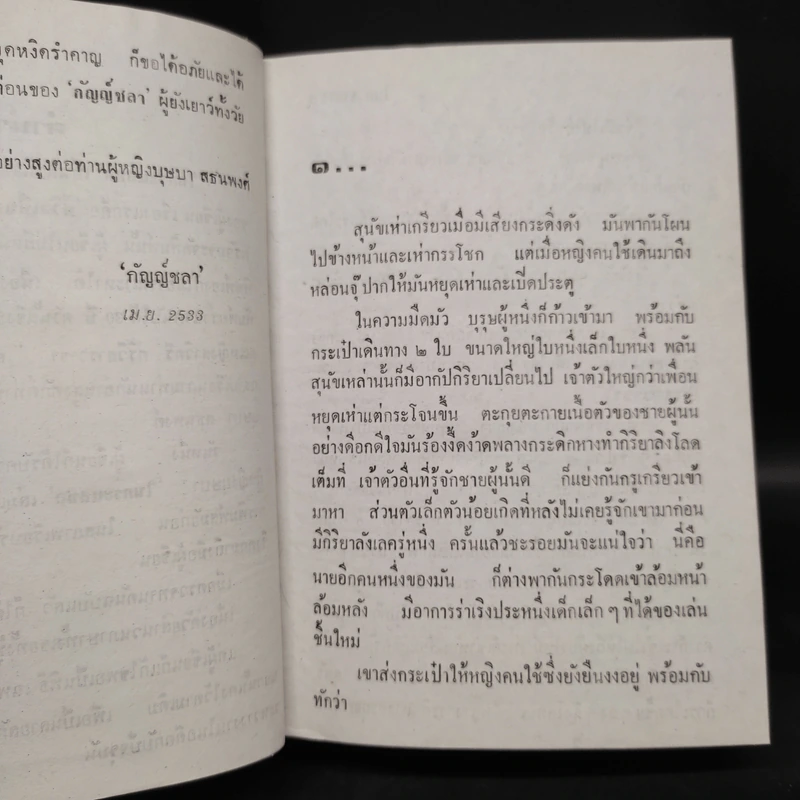 หงุดหงิดรำคาญ ก็ขอได้อภัยและได้
ของ 'กัญญ์ชลา' ผู้ยังเยาว์ทั้งวัย
อย่างสูงต่อท่านผู้หญิงบุษบา สธนพงศ์
'กัญญ์ชลา'
เม.ย. 2533
๑...
สุนัขเห่าเกรียวเมื่อมีเสียงกระดิ่งดัง มันพากันโผน
ไปข้างหน้าและเห่ากรรโชก แต่เมื่อหญิงคนใช้เดินมาถึง
หล่อนจุ๊ปากให้มันหยุดเห่าและเปิดประตู
ในความมืดมัว บุรุษผู้หนึ่งก็ก้าวเข้ามา พร้อมกับ
กระเป๋าเดินทาง ๒ ใบ ขนาดใหญ่ใบหนึ่งเล็กใบหนึ่ง พลัน
สุนัขเหล่านั้นก็มีอากัปกิริยาเปลี่ยนไป เจ้าตัวใหญ่กว่าเพื่อน
หยุดเห่าแต่กระโจนขึ้น ตะกุยตะกายเนื้อตัวของชายผู้นั้น
อย่างดีอกดีใจมันร้องงี้ดง้าดพลางกระดิกหางทำกิริยาลิงโลด
เต็มที่ เจ้าตัวอื่นที่รู้จักชายผู้นั้นดี ก็แย่งกันกรูเกรียวเข้า
มาหา ส่วนตัวเล็กตัวน้อยเกิดที่หลังไม่เคยรู้จักเขามาก่อน
มีกิริยาลังเลครู่หนึ่ง ครั้นแล้วชะรอยมันจะแน่ใจว่า นี่คือ
นายอีกคนหนึ่งของมัน ก็ต่างพากันกระโดดเข้าล้อมหน้า
ล้อมหลัง มีอาการร่าเริงประหนึ่งเด็กเล็ก ๆ ที่ได้ของเล่น
ชิ้นใหม่
เขาส่งกระเป๋าให้หญิงคนใช้ซึ่งยังยืนงงอยู่ พร้อมกับ
ทักว่า